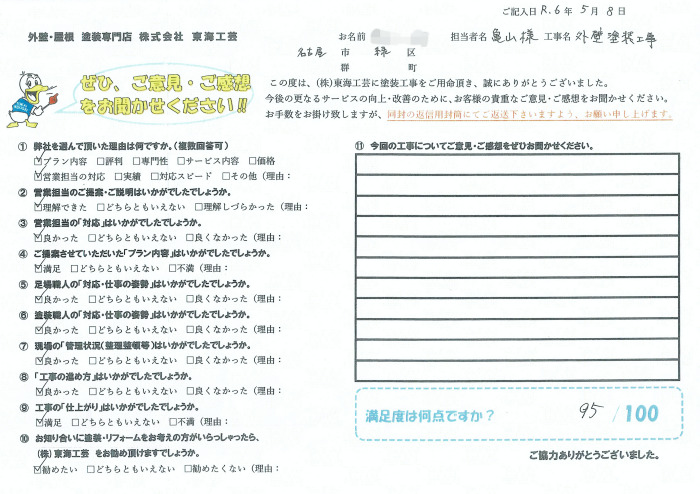 ご記入日 R.6 年 5 月 8 日
外壁・屋根 塗装専門店 株式会社 東海工芸
お名前 様 担当者名 亀山様 工事名 外壁塗装工事
名古屋 市 緑 区
郡 町
ぜひ、ご意見・ご感想
をお聞かせください!!
この度は、(株)東海工芸に塗装工事をご用命頂き、誠にありがとうございました。
今後の更なるサービスの向上・改善のために、お客様の貴重なご意見・ご感想をお聞かせください。
お手数をお掛け致しますが、同封の返信用封筒にてご返送下さいますよう、お願い申し上げます。
① 弊社を選んで頂いた理由は何ですか。(複数回答可)
☑プラン内容 □評判 □専門性 □サービス内容 □価格
☑営業担当の対応 □実績 □対応スピード □その他（理由：
② 営業担当のご提案・ご説明はいかがでしたでしょうか。
☑理解できた □どちらともいえない □理解しづらかった（理由：
③ 営業担当の「対応」はいかがでしたでしょうか。
☑良かった □どちらともいえない □良くなかった（理由：
④ ご提案させていただいた「プラン内容」はいかがでしたでしょうか。
☑満足 □どちらともいえない □不満（理由：
⑤ 足場職人の「対応・仕事の姿勢」はいかがでしたでしょうか。
☑良かった □どちらともいえない □良くなかった（理由：
⑥ 塗装職人の「対応・仕事の姿勢」はいかがでしたでしょうか。
☑良かった □どちらともいえない □良くなかった（理由：
⑦ 現場の「管理状況(整理整頓等)はいかがでしたでしょうか。
☑良かった □どちらともいえない □良くなかった（理由：
⑧ 「工事の進め方」はいかがでしたでしょうか。
☑良かった □どちらともいえない □良くなかった（理由：
⑨ 工事の「仕上がり」はいかがでしたでしょうか。
☑満足 □どちらともいえない □不満（理由：
⑩ お知り合いに塗装・リフォームをお考えの方がいらっしゃったら、
(株)東海工芸 をお勧め頂けますでしょうか。
☑勧めたい □どちらともいえない □勧めたくない（理由：
⑪ 今回の工事についてご意見・ご感想をぜひお聞かせください。
満足度は何点ですか？ 95 /100
ご協力ありがとうございました。